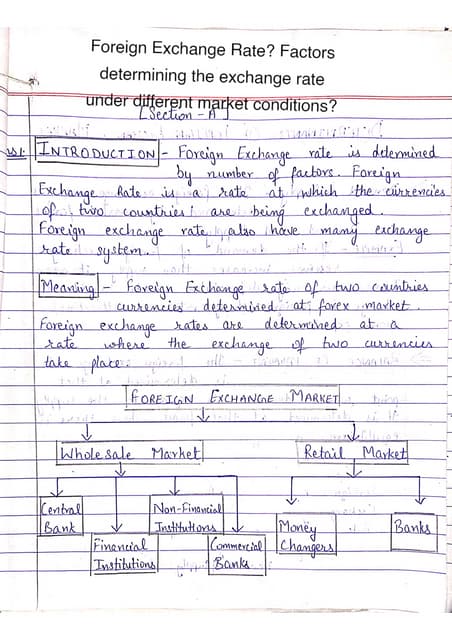 Foreign Exchange Rate? Factors
determining the exchange rate
under different market conditions?
[Section - A]
INTRODUCTION - Foreign Exchange rate is determined
by number of factors. Foreign
Exchange Rate is a rate at which the currencies
of two countries are being exchanged.
Foreign exchange rate also have many exchange
rate system.
Meaning - Foreign Exchange rate of two countries
currencies determined at forex market.
Foreign exchange rates are determined at a
rate where the exchange of two currencies
take place.
FOREIGN EXCHANGE MARKET
Wholesale Market Retail Market
Central Non-Financial Money Banks
Bank Institutions Changers
Financial Commercial
Institutions Banks